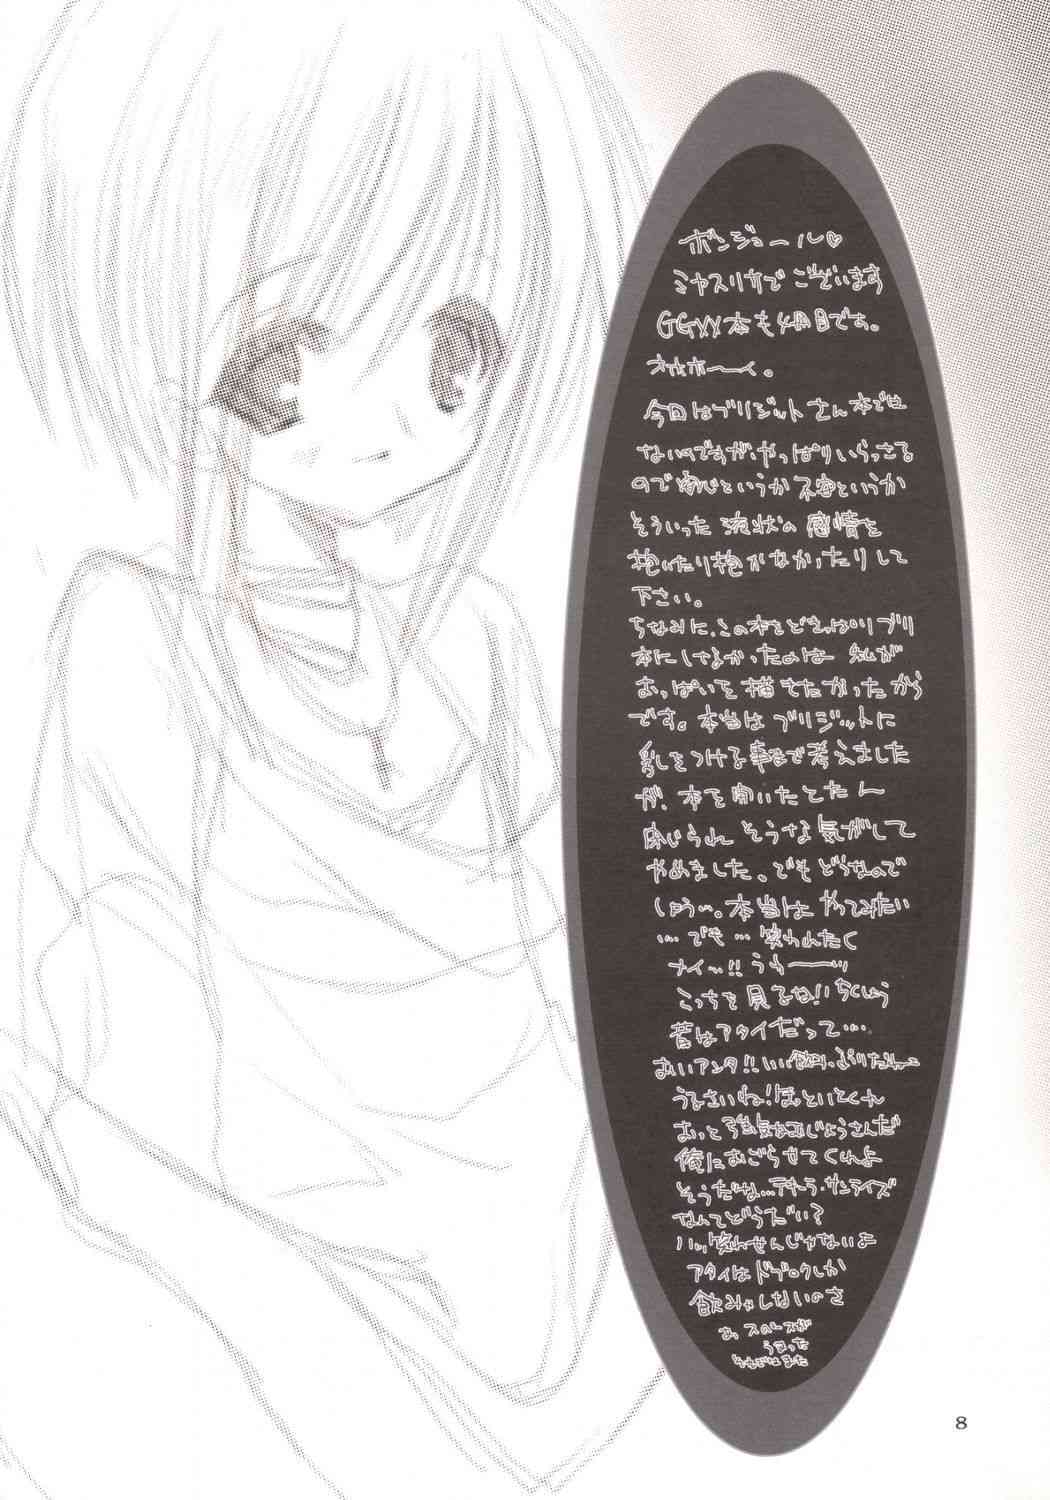 ボンジョール♡
ミヤスリサでございます
GGXX本も4冊目です。
オホホーイ。
今回はブリジットさん本では
ないのですが、やっぱりいらっさる
ので安心というか不安というか
そういった現状の感情を
抱いたり抱かなかったりして
下さい。
ちなみに、この本をどきっぱりブリ
本にしなかったのは 私が
おっぱいを描きたかったから
です。本当はブリジットに
乳をつける事まで考えました
が、本を開いたとたん
閉じられそうな気がして
やめました。でもどうなので
しょう…。本当はやってみたい
…でも…嫌われたく
ナイ…!! うわーーッ
こっちを見るね!!ちくしょう
昔はアタイだって…。
おいアンタ!!いい飲りっぷりだねェ
うるさいね!ほっといとくれ
おっと強気なおじょうさんだ
俺におごらせてくれよ
そうだな…テキーラ・サンライズ
なんてどうだい?
ハッ、笑わせんじゃないよ
アタイはドブロクしか
飲みゃしないのさ
あ、スペースが
うまった
それではまた
8